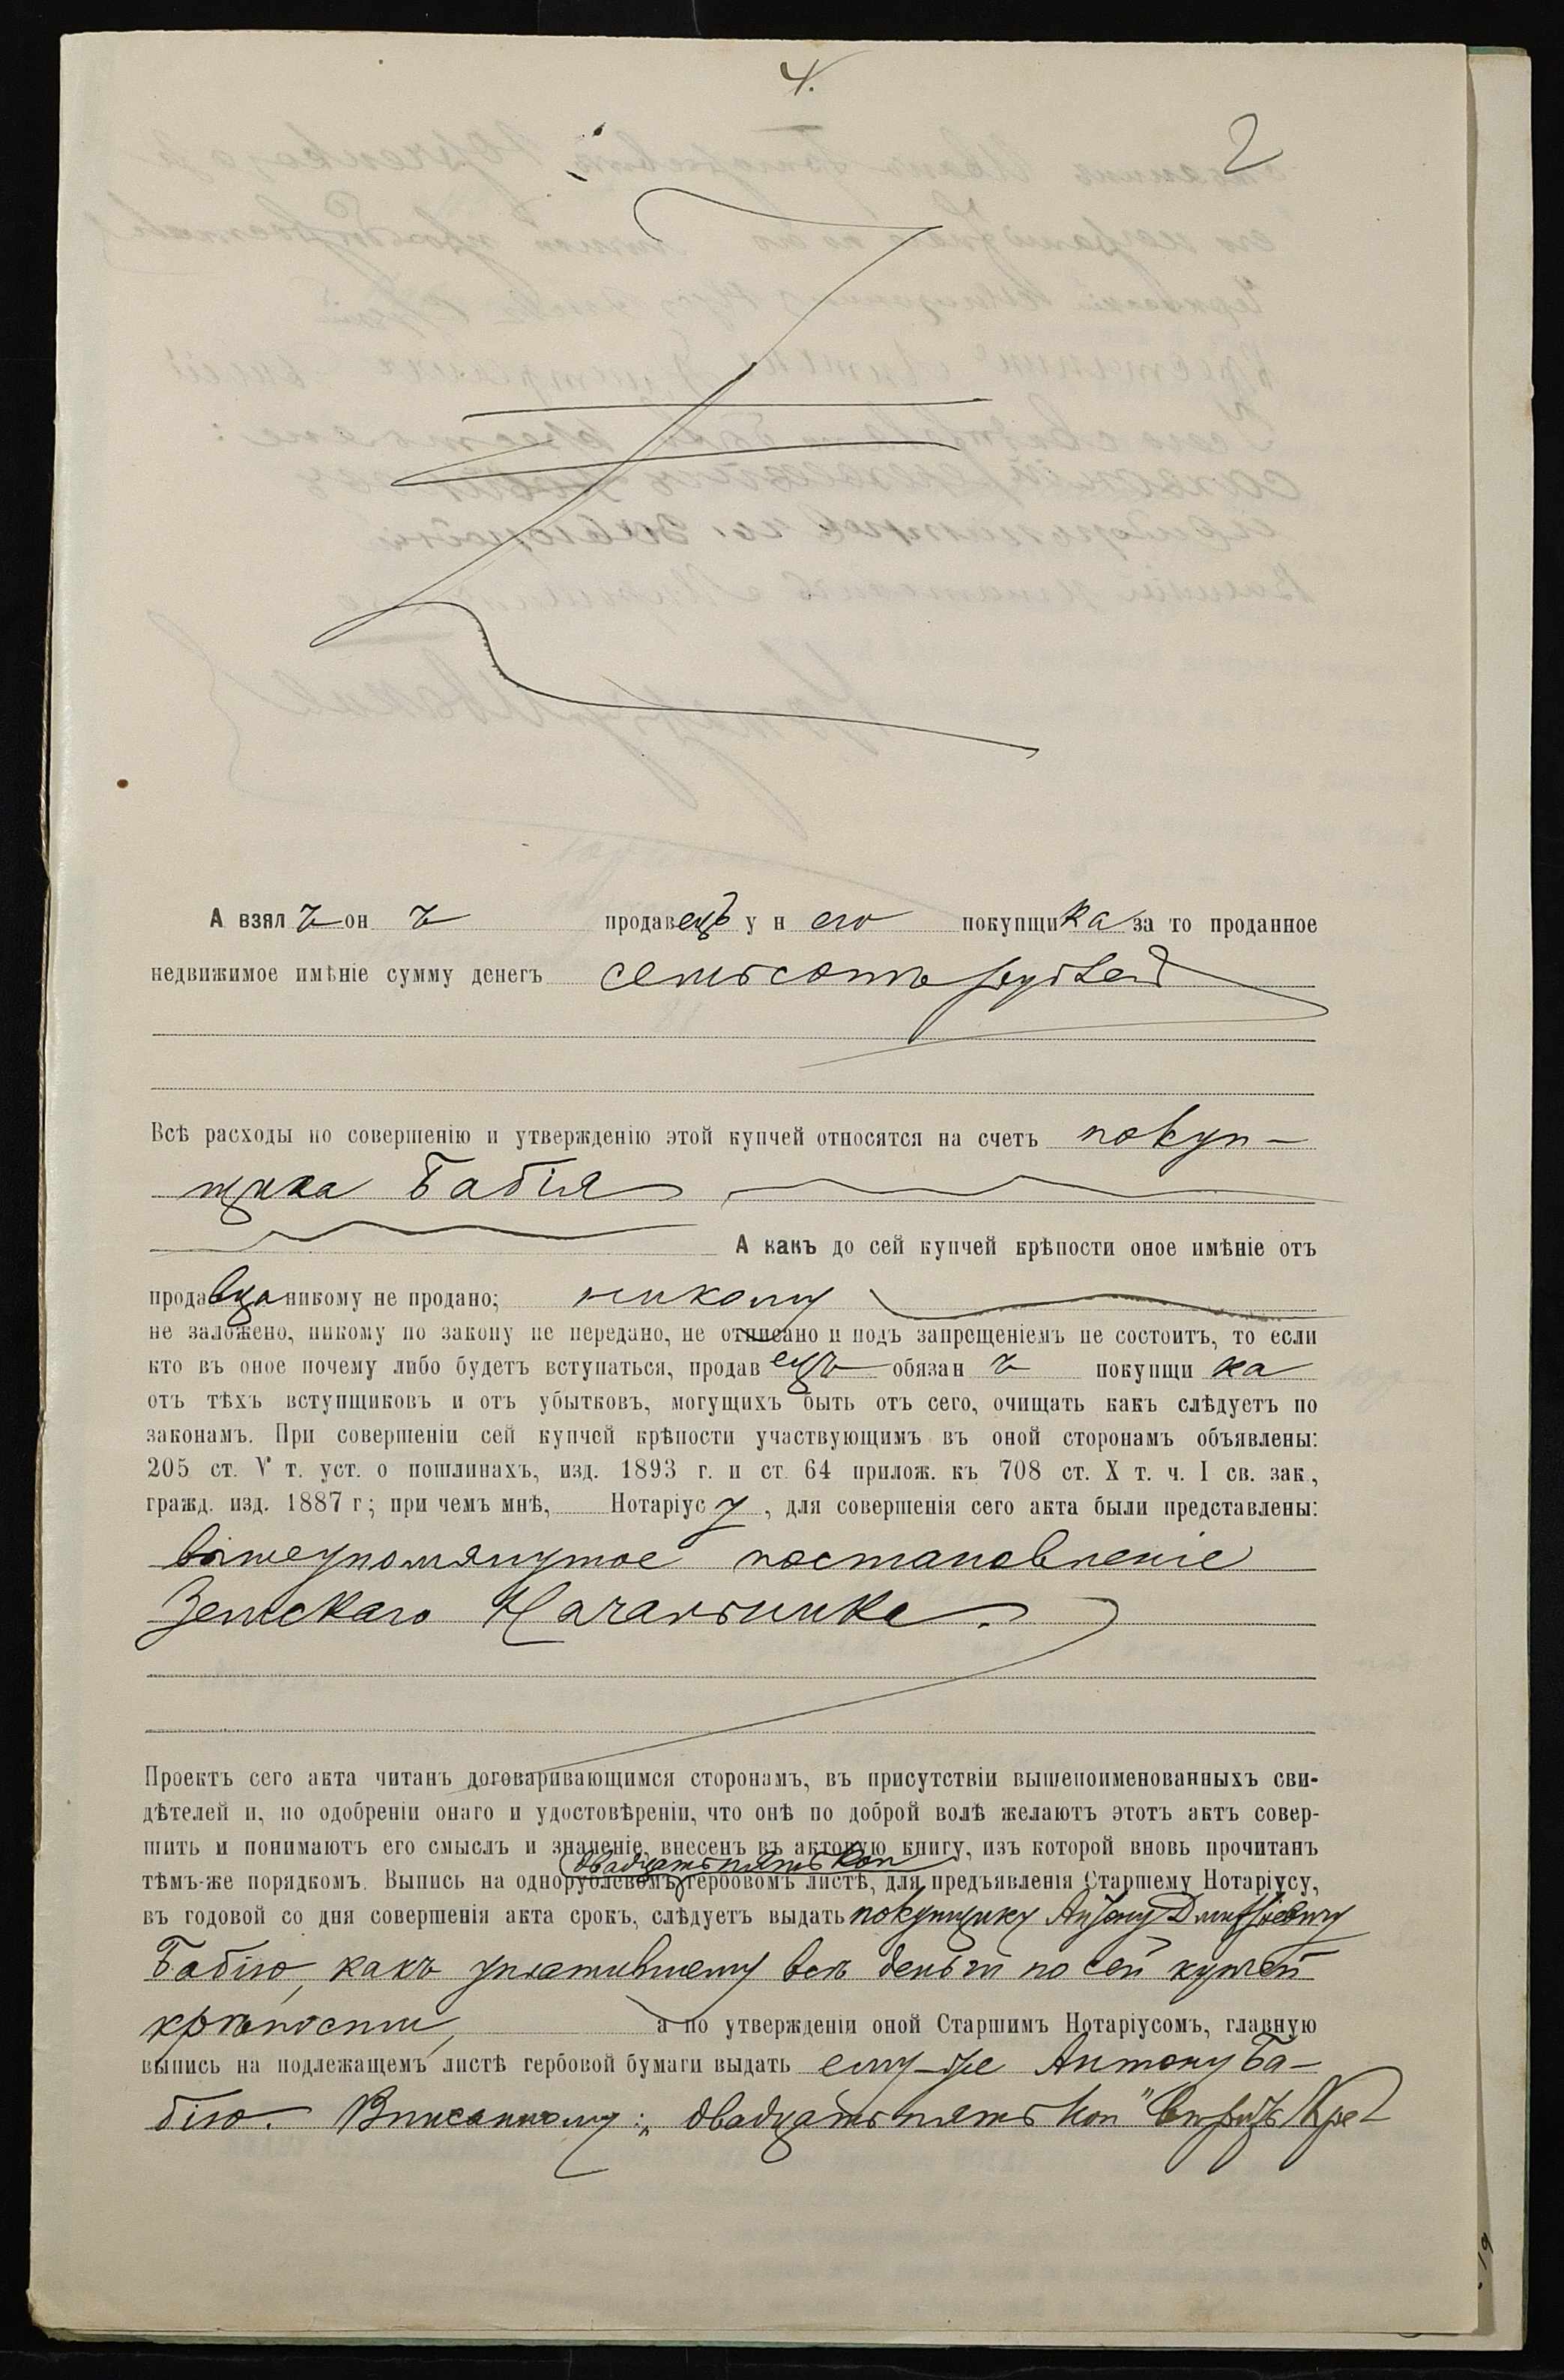 4.
2
А взялъ онъ продавецъ у него покупщика за то проданное
недвижимое имѣніе сумму денегъ семьсотъ рублей
Всѣ расходы по совершенію и утвержденію этой купчей относятся на счетъ покуп-
щика Бабія
А какъ до сей купчей крѣпости оное имѣніе отъ
продавца никому не продано; никому
не заложено, никому по закону не передано, не отписано и подъ запрещеніемъ не состоитъ, то если
кто въ оное почему либо будетъ вступаться, продавецъ обязанъ покупщика
отъ тѣхъ вступщиковъ и отъ убытковъ, могущихъ быть отъ сего, очищать какъ слѣдуетъ по
законамъ. При совершеніи сей купчей крѣпости участвующимъ въ оной сторонамъ объявлены:
205 ст. V т. уст. о пошлинахъ, изд. 1893 г. и ст. 64 прилож. къ 708 ст. X т. ч. I св. зак.,
гражд. изд. 1887 г; при чемъ мнѣ, Нотаріусу, для совершенія сего акта были представлены:
вышеупомянутое постановленіе
Земскаго Начальника.
Проектъ сего акта читанъ договаривающимся сторонамъ, въ присутствіи вышепоименованныхъ сви-
дѣтелей и, по одобреніи онаго и удостовѣреніи, что онѣ по доброй волѣ желаютъ этотъ актъ совер-
шить и понимаютъ его смыслъ и значеніе, внесенъ въ актовую книгу, изъ которой вновь прочитанъ
двадцать пять коп
тѣмъ-же порядкомъ. Выпись на однорублевомъ гербовомъ листѣ, для предъявленія Старшему Нотаріусу,
въ годовой со дня совершенія акта срокъ, слѣдуетъ выдать покупщику Антону Дмитріевичу
Бабію, какъ уплатившему всѣ деньги по сей купчей
крѣпости, а по утвержденіи оной Старшимъ Нотаріусомъ, главную
выпись на подлежащемъ листѣ гербовой бумаги выдать ему-же Антону Ба-
бію. Вписанному: „двадцать пять коп"